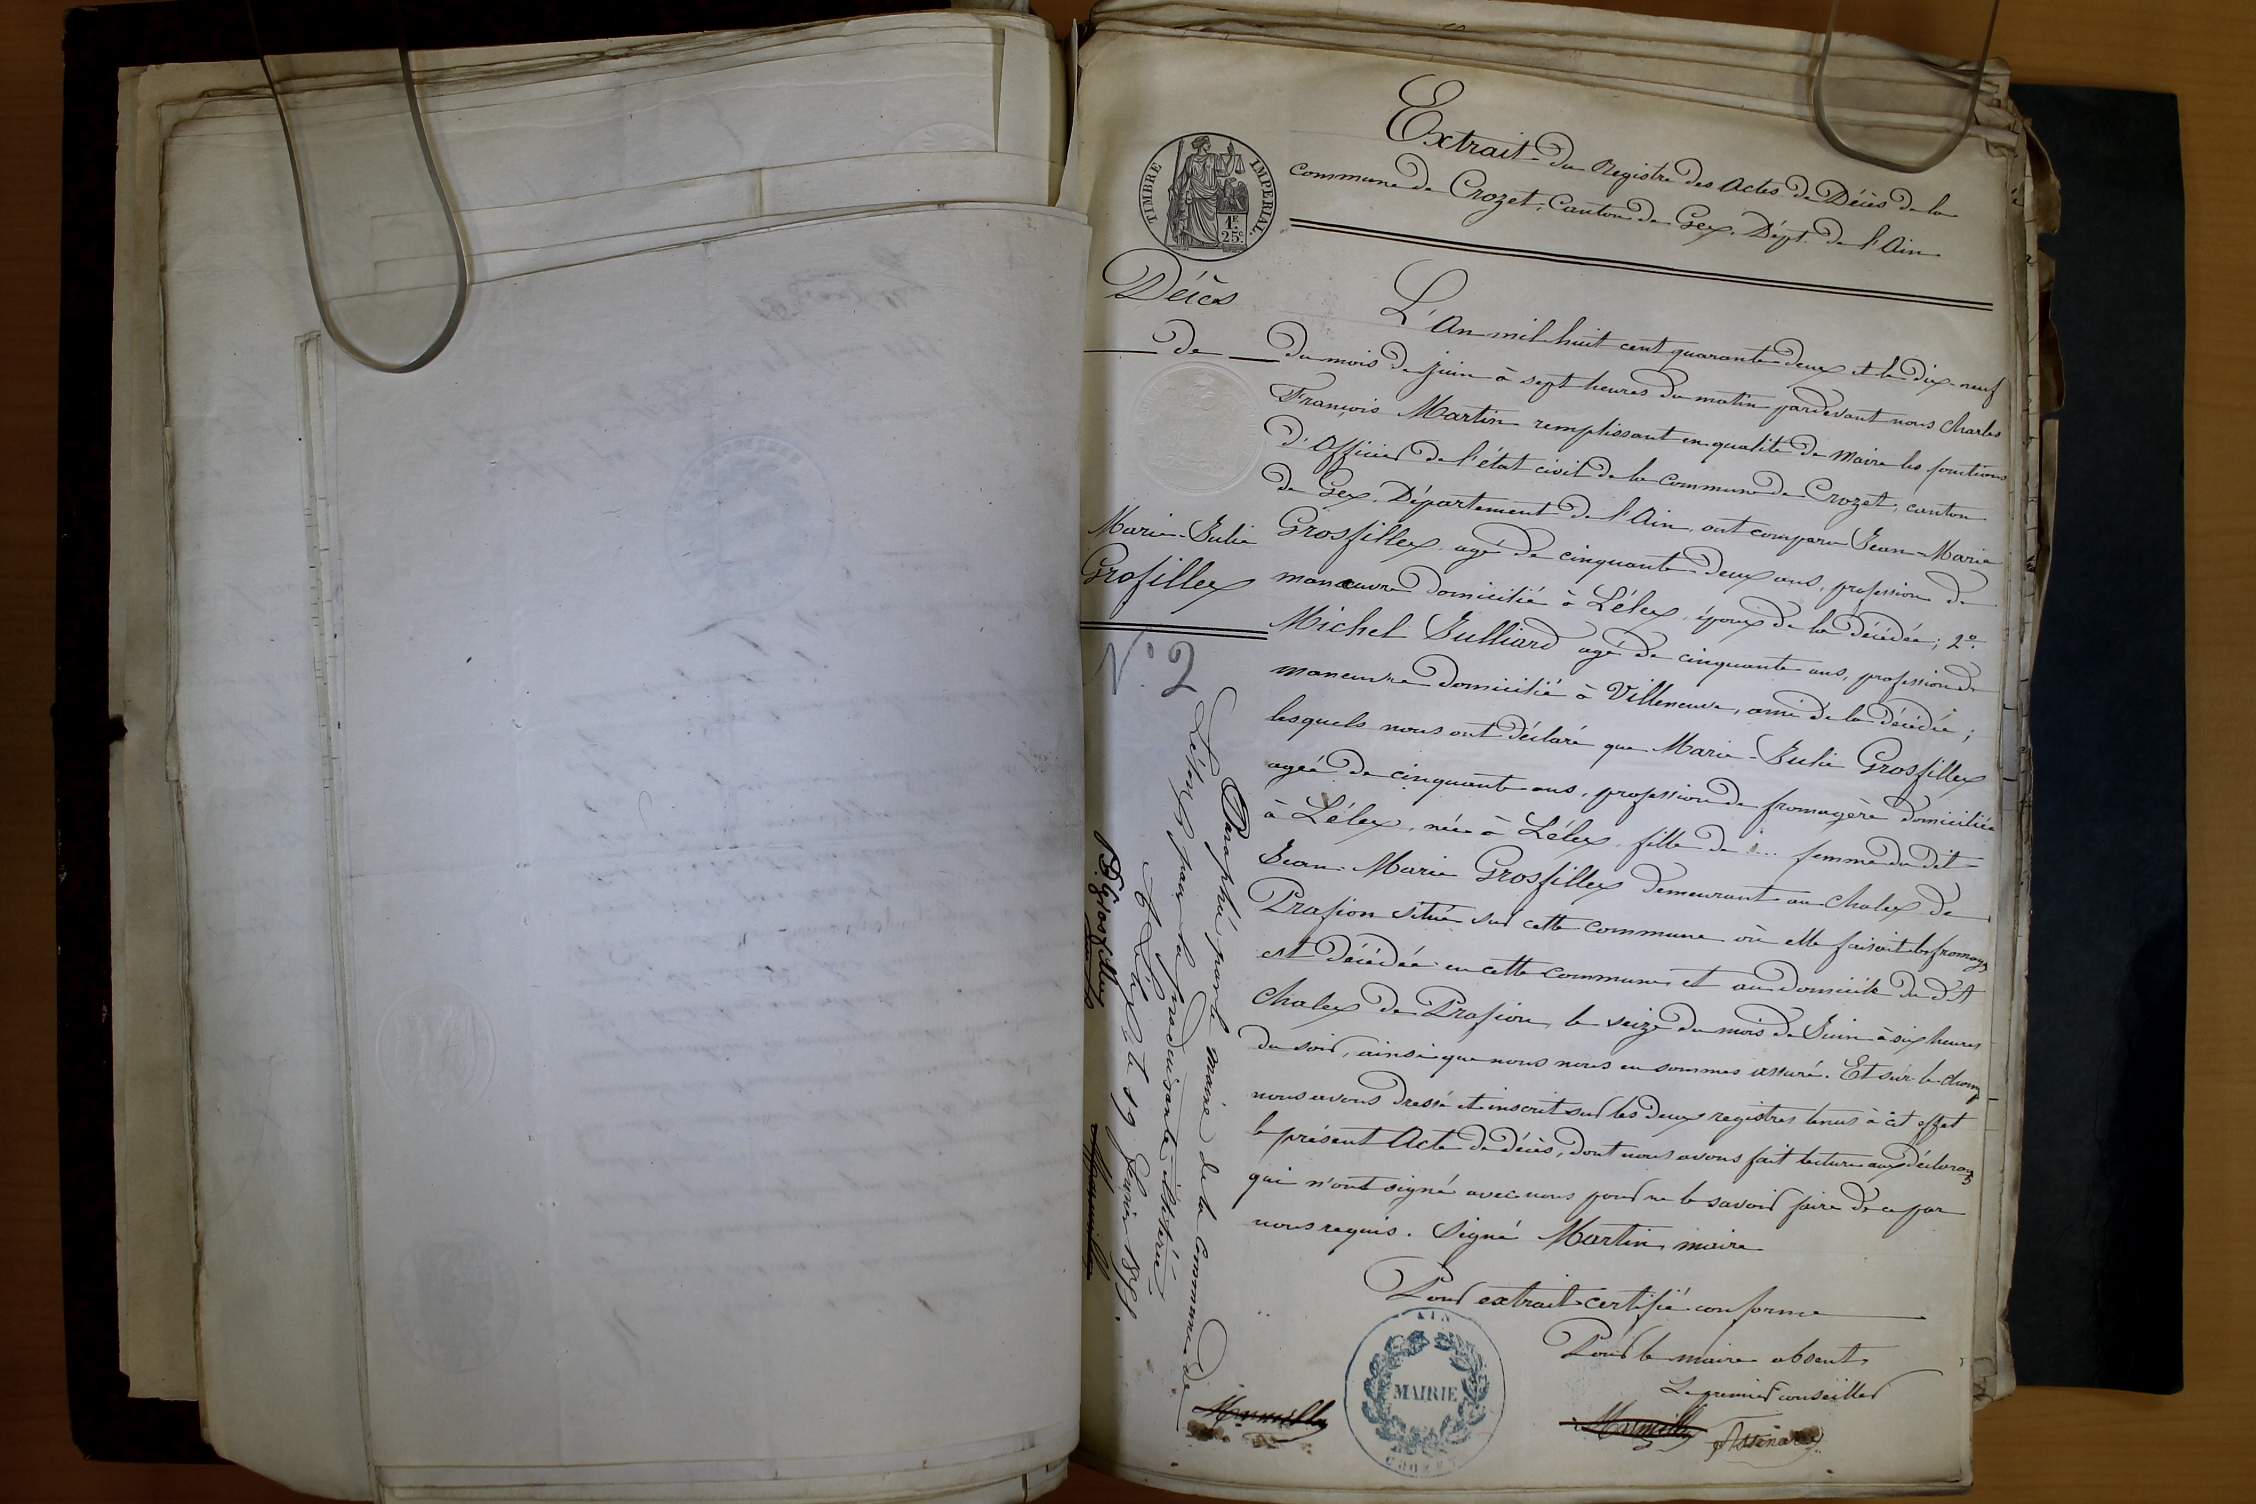 Extrait du Registre des Actes de Décès de la
commune de Crozet, Canton de Gex, Dépt. de l'Ain
TIMBRE IMPERIAL.
1F
25c.
Décès
de
Marie-Julie
Grosfillex
N.° 2
L'An mil huit cent quarante deux et le dix-neuf
du mois de juin à sept heures du matin pardevant nous Charles
François Martin remplissant en qualité de Maire les fonctions
d'Officier de l'état civil de la Commune de Crozet, canton
de Gex, Département de l'Ain, ont comparu Jean-Marie
Grosfillex agé de cinquante deux ans, profession de
manœuvre domicilié à Lélex, époux de la décédée; 2°.
Michel Julliard agé de cinquante ans, profession de
maneuvre domicilié à Villeneuve, ami de la décédée;
lesquels nous ont déclaré que Marie-Julie Grosfillex
ageé de cinquante ans, profession de fromagère domiciliée
à Lélex, née à Lélex, fille de ... femme du dit
Jean-Marie Grosfillex demeurant au chalex de
Prafion située sur cette commune où elle faisait les fromages
est décédée en cette commune et au domicile du dt
chalex de Prafion, le seize du mois de Juin à six heures
du soir, ainsi que nous nous en sommes assuré. Et sur le champ
nous avons dressé et inscrit sur les deux registres tenus à cet effet
le présent Acte de décès, dont nous avons fait lecture aux déclarans
qui n'ont signé avec nous pour ne le savoir faire de ce par
nous requis. Signé Martin, maire
Pour extrait certifié conforme
Pour le maire absent,
Le premier conseiller
AIN
MAIRIE
CROZET
Paraphé par le Maire de la Commune de
Lélex, pour la produisante illitérée
A Lélex, le 19 Janvier
B. Grosfillex